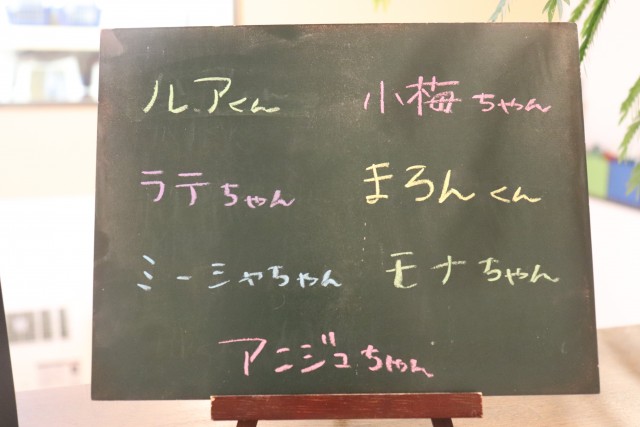 ルアくん 小梅ちゃん
ラテちゃん まろんくん
ミーシャちゃん モナちゃん
アニジュちゃん